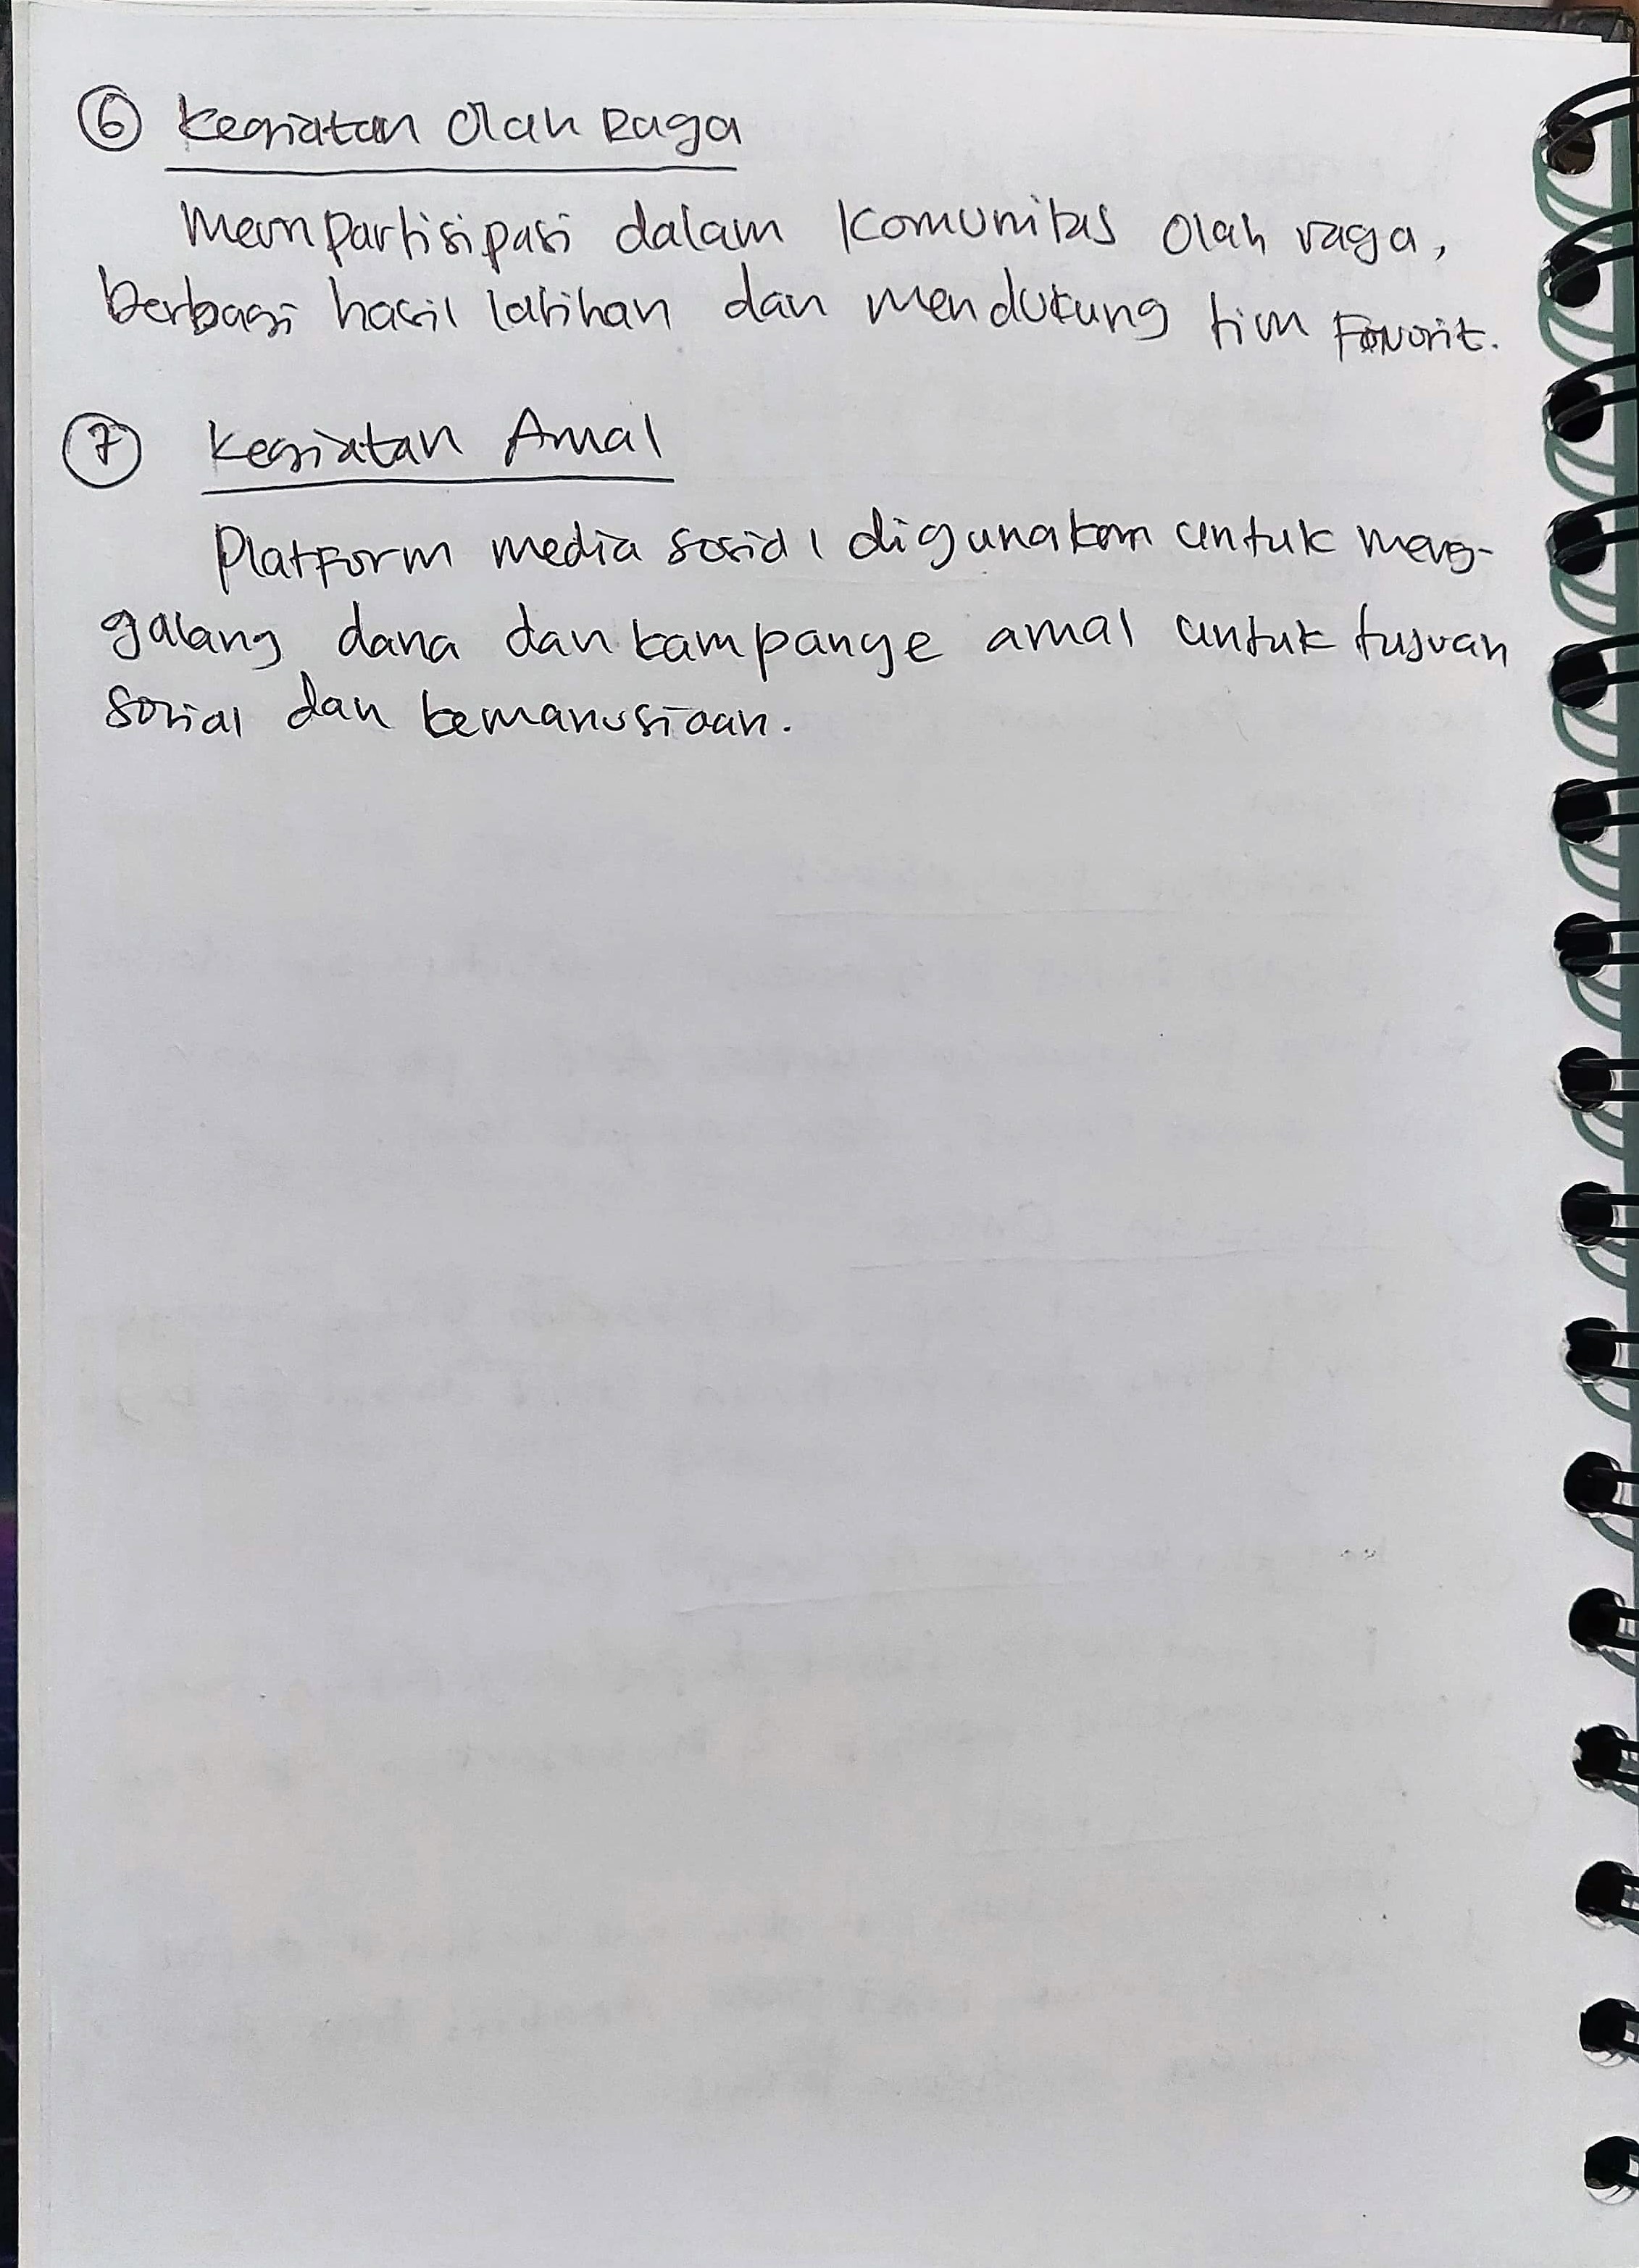 ⑥ Kegiatan Olah Raga
Mempartisipasi dalam Komunitas Olah raga,
berbagi hasil latihan dan mendukung tim Favorit.
⑦ Kegiatan Amal
Platform media sosial digunakan untuk meng-
galang dana dan kampanye amal untuk tujuan
sosial dan kemanusiaan.